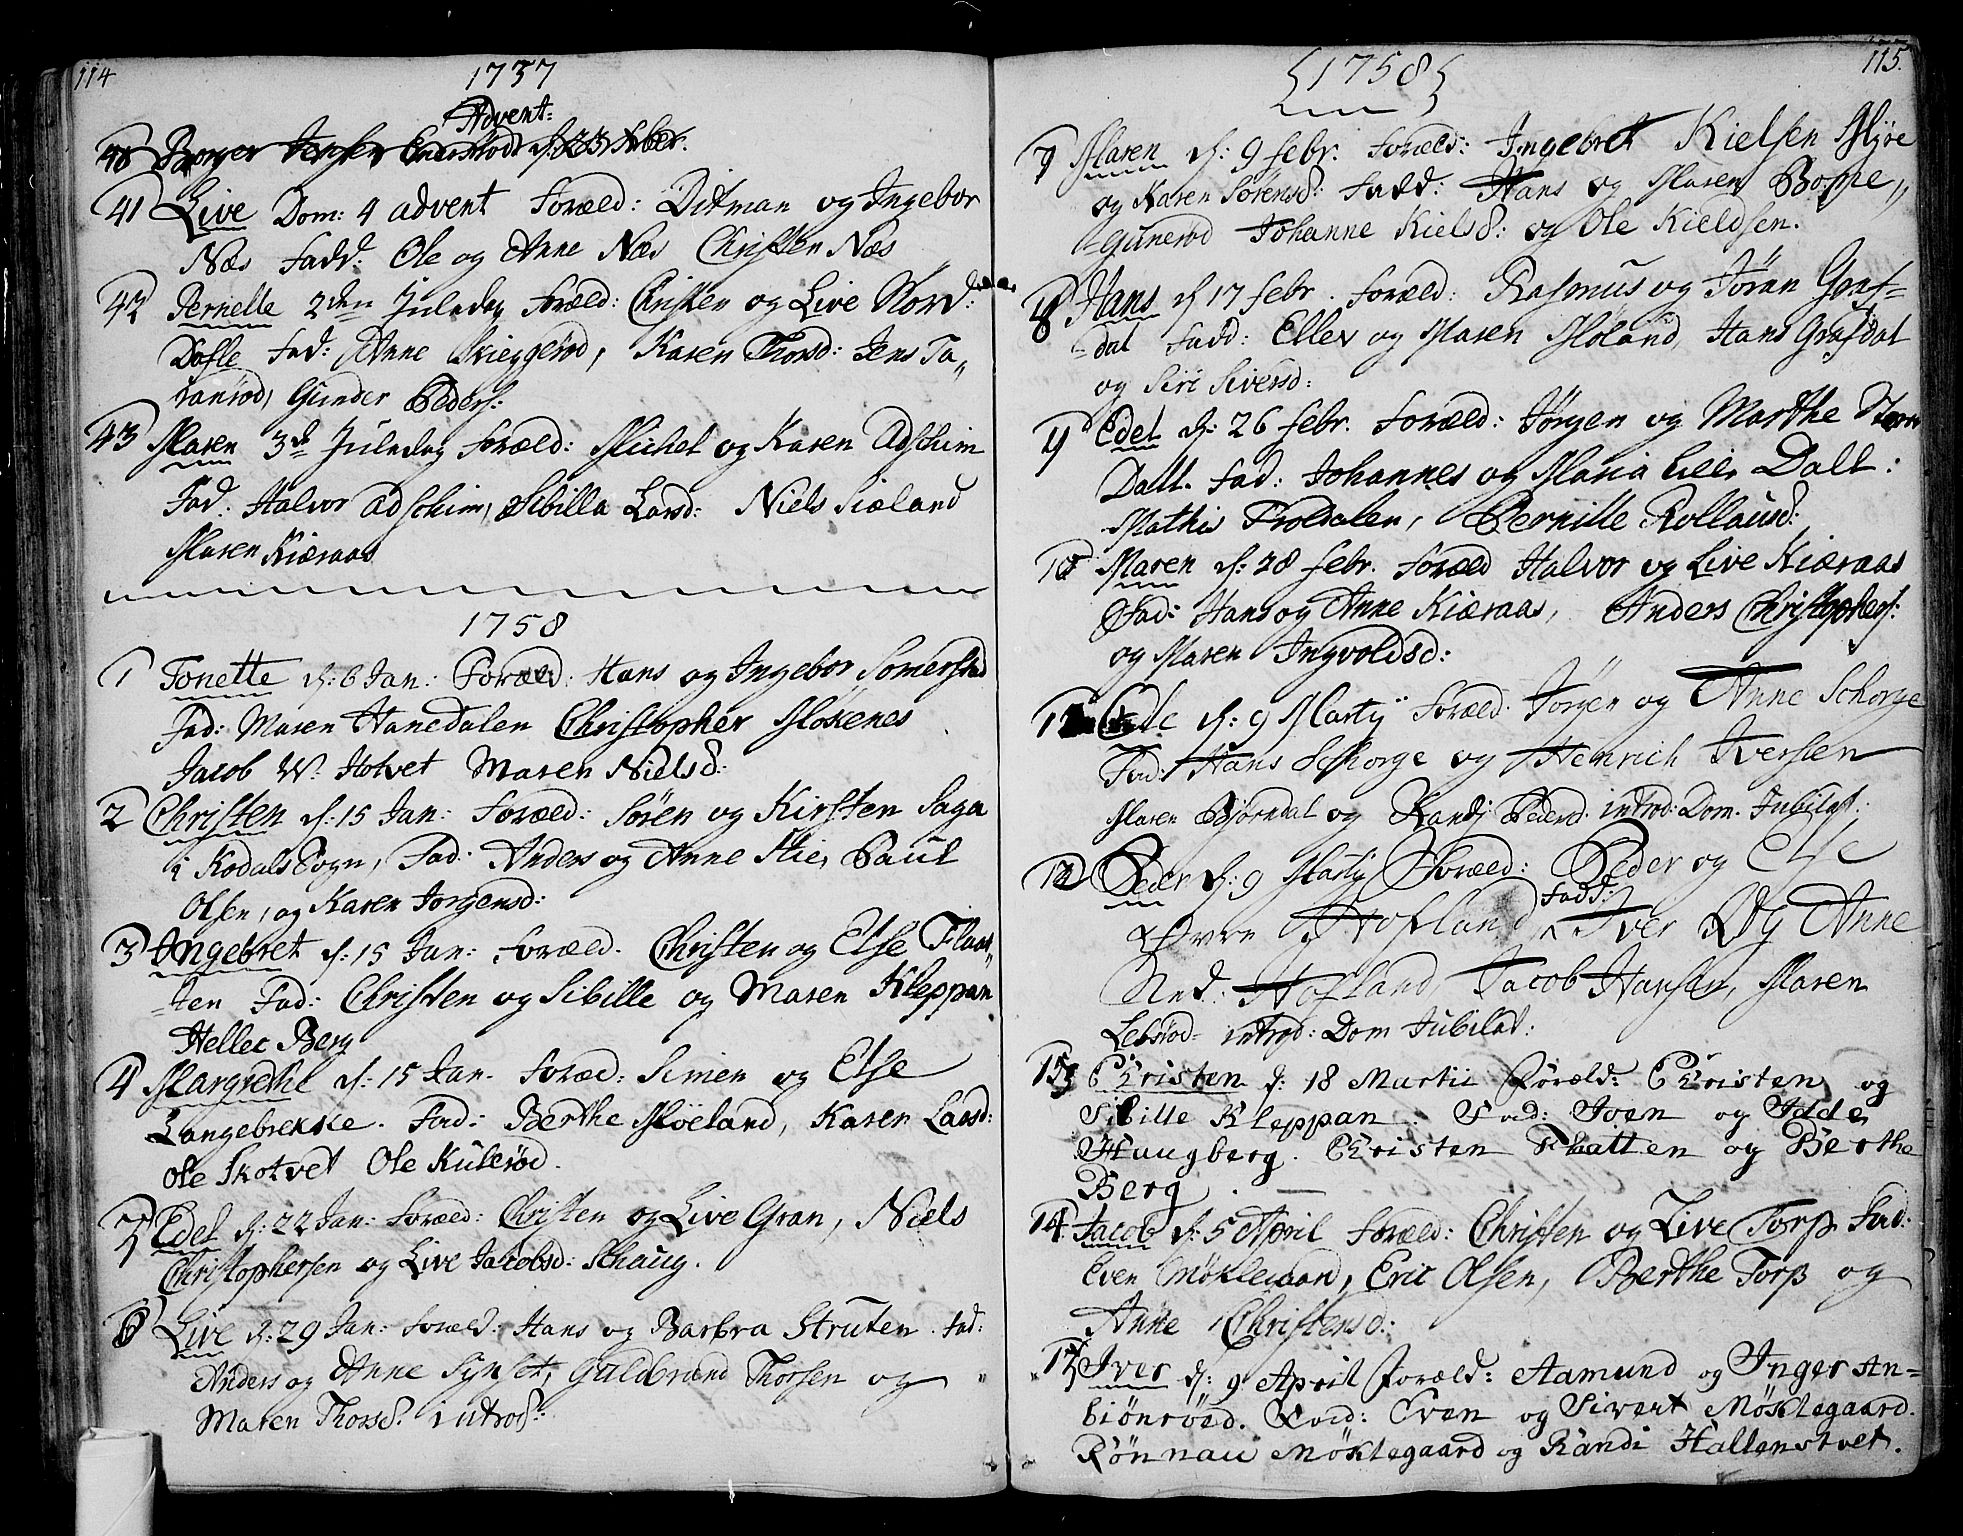 114
1737
Advent:
40 Borger Jensen
41 Live Dom: 4 advent Foræld: Ditman og Ingebor
Næs Fadd: Ole og Anne Næs Christen Næs
42 Pernelle 2den Juledag foræld: Christen og Live Nord:
Dofle Fad: Anne Skieggerød, Karen Thorsd: Jens Ta„
ranrød, Gunder Peders:
43 Maren 3d Juledag foræld: Michel og Karen Adschim
Fad. Halvor Adschim, Sibilla Larsd: Niels Siæland
Maren Kiæraas
1758
1 Tonette d: 6 Jan: Foræld: Hans og Ingebor Somersted
Fad: Maren Hanedalen Christopher Moxenes
Jacob W. Hotvet Maren Nielsd:
2 Christen d: 15 Jan: Foræld: Sören og Kirsten Saga
i Kodals Sogn, Fad: Anders og Anne Lie, Paul
Olsen, og Karen Jorgensd:
3 Ingebret d: 15 Jan: foræld. Christen og Else Flaat„
ten Fad: Christen og Sibille og Maren Kleppan
Hellec Berg
4 Margrethe d: 15 Jan. foræd: Simen og Else
Langebrekke. Fad: Berthe Möeland, Karen Larsd:
Ole Skotvet Ole Kulerød.
5 Edel d: 22 Jan: foræld: Christen og Live Gran, Niels
Christophersen og Live Jacobsd: Schaug.
6 Live d: 29 Jan: foræld: Hans og Barbra Struten. Fad:
Anders og Anne Synset, Guldbrand Thorsen og
Maren Thorsd. introd:
115.
1758
7 Maren d: 9 febr. foræld: Ingebret Kielsen Myre
og Karen Sörensd: Fadd: Hans og Maren Bommen„
Gunerød Johanne Kielsd: og Ole Kieldsen.
8 Hans d 17 febr. foræld: Rasmus og Jöran Graf-
dal Fadd: Ellev og Maren Möland, Hans Grafdal
og Siri Siversd:
9 Edel d: 26 febr. foræld: Jörgen og Marthe Store
Dall. Fad: Johannes og Maria Lille Dall:
Mathis Troldalen, Pernille Rollausd:
10 Maren d: 28 febr. foræld Halvor og Live Kiæraas
Fad: Hans og Anne Kiæraas, Anders Christophers:
og Maren Ingvoldsd:
d: 9 Martij foræld. Jörgen og Anne Schorge
Fad: Hans Schorge og Heinrich Iversen
Maren Bjørndal og Randj Pedersd. introd: Dom. Jubilat:
12 Peder d: 9 Martij Foræld: Peder og Else
Øvre Hofland, Fadd: Iver Og Anne
Ned: Hofland, Jacob Hansen, Maren
Lebrød introd: Dom Jubilat:
13 Christen d: 18 Martii Foræld: Christen og
Sibille Kleppan. Fad: Iven og Idde
Haugberg. Christen Flatten og Berthe
Berg.
14 Jacob d: 5 April foræld: Christen og Live Torp Fad:
Even Möklegaard, Eric Olsen, Berthe Torp og
Anne Christensd:
15 Iver d: 9 April Foræld: Aamund og Inger An-
biönröed. Fad: Even og Sivert Möklegaard.
Rönnau Möklegaard og Randi Hallenstvet.